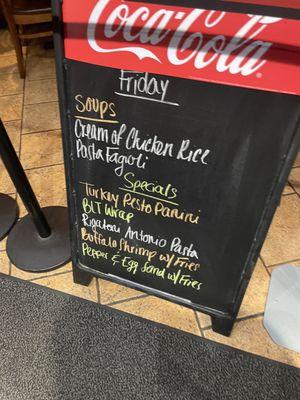 Coca-Cola
Friday
Soups
Cream of Chicken Rice
Pasta Fagioli
Specials
Turkey Pesto Panini
BLT Wrap
Rigatoni Antonio Pasta
Buffalo Shrimp w/ Fries
Pepper & Egg Sand w/ Fries